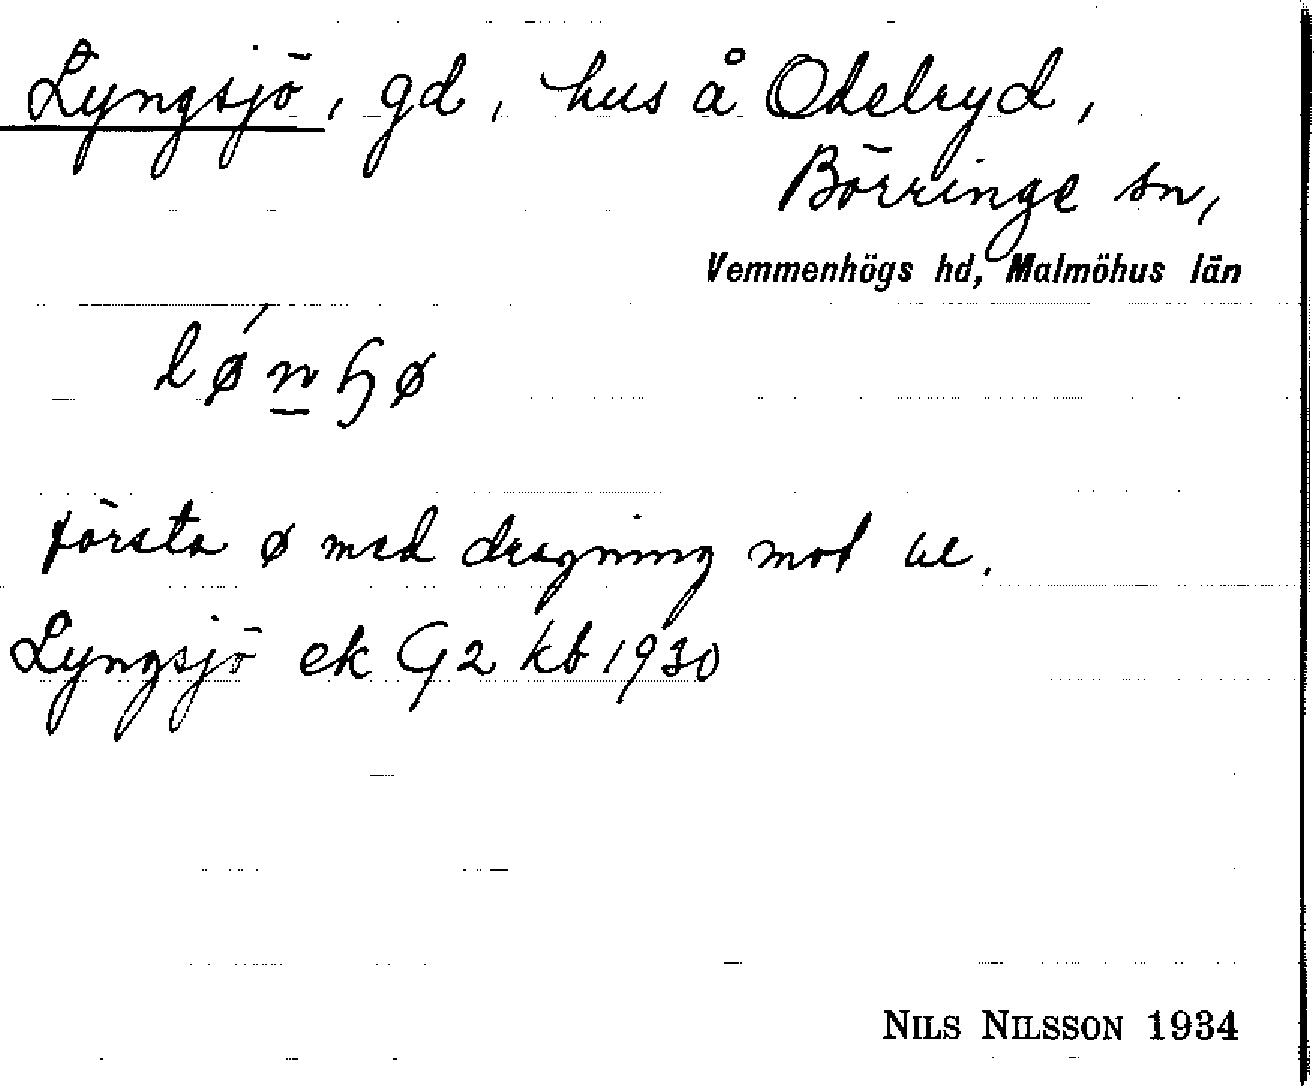 Lyngsjö, gd, hus å Odelryd,
Börringe sn,
Vemmenhögs hd, Malmöhus län
första ø med dragning mot œ.
Lyngsjö ek G2 kb 1930
NILS NILSSON 1934